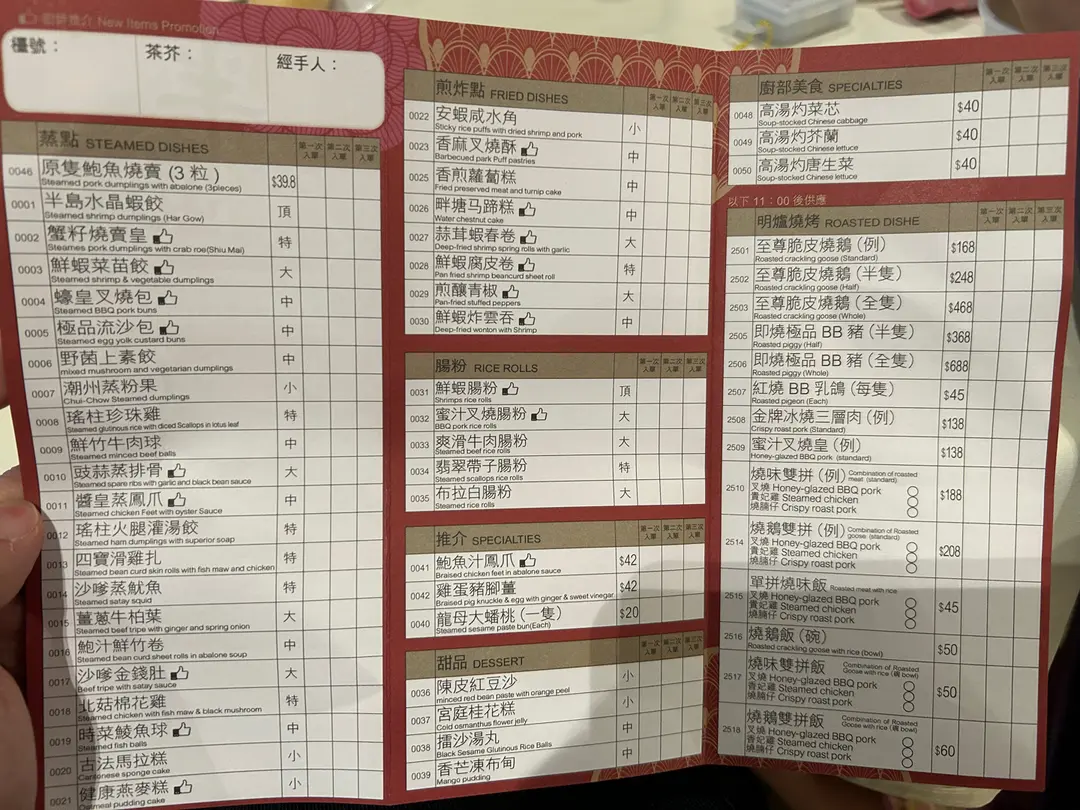 New Items Promotion
檯號：
茶芥：
經手人：
蒸點 STEAMED DISHES 第一次入單 第二次入單 第三次入單
0046 原隻鮑魚燒賣 (3 粒) $39.8
Steamed pork dumplings with abalone (3pieces)
0001 半島水晶蝦餃 頂
Steamed shrimp dumplings (Har Gow)
0002 蟹籽燒賣皇 特
Steames pork dumplings with crab roe(Shiu Mai)
0003 鮮蝦菜苗餃 大
Steamed shrimp & vegetable dumplings
0004 蠔皇叉燒包 中
Steamed BBQ pork buns
0005 極品流沙包 中
Steamed egg yolk custard buns
0006 野菌上素餃 中
mixed mushroom and vegetarian dumplings
0007 潮州蒸粉果 小
Chui-Chow Steamed dumplings
0008 瑤柱珍珠雞 特
Steamed glutinous rice with diced Scallops in lotus leaf
0009 鮮竹牛肉球 中
Steamed minced beef balls
0010 豉蒜蒸排骨 大
Steamed spare ribs with garlic and black bean sauce
0011 醬皇蒸鳳爪 中
Steamed chicken Feet with oyster Sauce
0012 瑤柱火腿灌湯餃 特
Steamed ham dumplings with superior soap
0013 四寶滑雞扎 特
Steamed bean curd skin rolls with fish maw and chicken
0014 沙嗲蒸魷魚 特
Steamed satay squid
0015 薑蔥牛柏葉 大
Steamed beef tripe with ginger and spring onion
0016 鮑汁鮮竹卷 中
Steamed bean curd sheet rolls in abalone soup
0017 沙嗲金錢肚 大
Beef tripe with satay sauce
0018 北菇棉花雞 特
Steamed chicken with fish maw & black mushroom
0019 時菜鯪魚球 中
Steamed fish balls
0020 古法馬拉糕 小
Cantonese sponge cake
0021 健康燕麥糕 小
Oatmeal pudding cake
煎炸點 FRIED DISHES 第一次入單 第二次入單 第三次入單
0022 安蝦咸水角 小
Sticky rice puffs with dried shrimp and pork
0023 香麻叉燒酥 中
Barbecued park Puff pastries
0025 香煎蘿蔔糕 中
Fried preserved meat and turnip cake
0026 畔塘马蹄糕 中
Water chestnut cake
0027 蒜茸蝦春卷 大
Deep-fried shrimp spring rolls with garlic
0028 鮮蝦腐皮卷 特
Pan fried shrimp beancurd sheet roll
0029 煎釀青椒 大
Pan-fried stuffed peppers
0030 鮮蝦炸雲吞 中
Deep-fried wonton with Shrimp
腸粉 RICE ROLLS 第一次入單 第二次入單 第三次入單
0031 鮮蝦腸粉 頂
Shrimps rice rolls
0032 蜜汁叉燒腸粉 大
BBQ pork rice rolls
0033 爽滑牛肉腸粉 大
Steamed beef rice rolls
0034 翡翠帶子腸粉 特
Steamed scallops rice rolls
0035 布拉白腸粉 大
Steamed rice rolls
推介 SPECIALTIES 第一次入單 第二次入單 第三次入單
0041 鮑魚汁鳳爪 $42
Braised chicken feet in abalone sauce
0042 雞蛋豬腳薑 $42
Braised pig knuckle & egg with ginger & sweet vinegar
0040 龍母大蟠桃 (一隻) $20
Steamed sesame paste bun(Each)
甜品 DESSERT 第一次入單 第二次入單 第三次入單
0036 陳皮紅豆沙 小
minced red bean paste with orange peel
0037 宮庭桂花糕 小
Cold osmanthus flower jelly
0038 擂沙湯丸 中
Black Sesame Glutinous Rice Balls
0039 香芒凍布甸 中
Mango pudding
廚部美食 SPECIALTIES 第一次入單 第二次入單 第三次入單
0048 高湯灼菜芯 $40
Soup-stocked Chinese cabbage
0049 高湯灼芥蘭 $40
Soup-stocked Chinese lettuce
0050 高湯灼唐生菜 $40
Soup-stocked Chinese lettuce
以下 11：00 後供應
明爐燒烤 ROASTED DISHE 第一次入單 第二次入單 第三次入單
2501 至尊脆皮燒鵝 (例) $168
Roasted crackling goose (Standard)
2502 至尊脆皮燒鵝 (半隻) $248
Roasted crackling goose (Half)
2503 至尊脆皮燒鵝 (全隻) $468
Roasted crackling goose (Whole)
2505 即燒極品 BB 豬 (半隻) $368
Roasted piggy (Half)
2506 即燒極品 BB 豬 (全隻) $688
Roasted piggy (Whole)
2507 紅燒 BB 乳鴿 (每隻) $45
Roasted pigeon (Each)
2508 金牌冰燒三層肉 (例) $138
Crispy roast pork (Standard)
2509 蜜汁叉燒皇 (例) $138
Honey-glazed BBQ pork (standard)
2510 燒味雙拼 (例) Combination of roasted meat (standard) $188
叉燒 Honey-glazed BBQ pork
貴妃雞 Steamed chicken
燒腩仔 Crispy roast pork
2514 燒鵝雙拼 (例) Combination of Roasted goose (standard) $208
叉燒 Honey-glazed BBQ pork
貴妃雞 Steamed chicken
燒腩仔 Crispy roast pork
2515 單拼燒味飯 Roasted meat with rice $45
叉燒 Honey-glazed BBQ pork
貴妃雞 Steamed chicken
燒腩仔 Crispy roast pork
2516 燒鵝飯 (碗) $50
Roasted crackling goose with rice (bowl)
2517 燒味雙拼飯 Combination of Roasted Goose with rice (碗 bowl) $50
叉燒 Honey-glazed BBQ pork
貴妃雞 Steamed chicken
燒腩仔 Crispy roast pork
2518 燒鵝雙拼飯 Combination of Roasted Goose with rice (碗 bowl) $60
叉燒 Honey-glazed BBQ pork
香妃雞 Steamed chicken
燒腩仔 Crispy roast pork